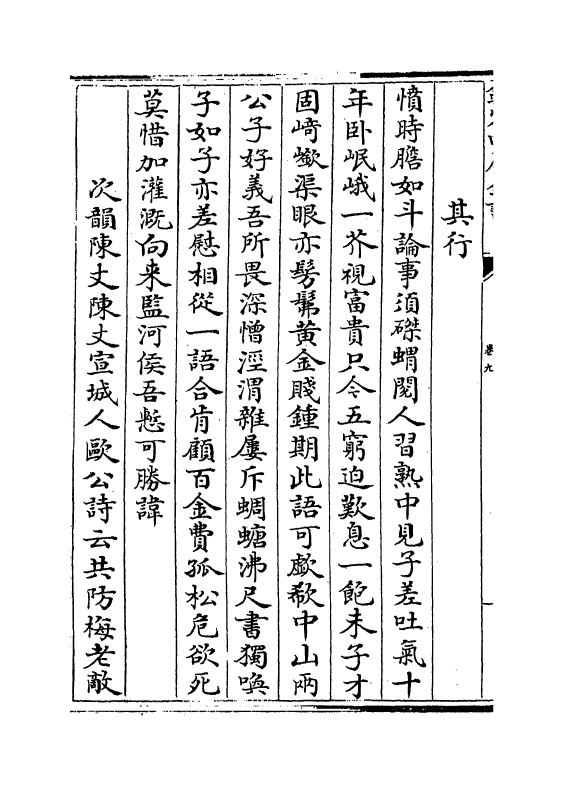 卷九
其行
憤時膽如斗論事須磔蝟閱人習熟中見子差吐氣十
年卧岷峨一芥視富貴只今五窮迫歎息一飽未子才
固﨑嶔渠眼亦髣髴黄金賤鍾期此語可歔欷中山兩
公子好義吾所畏深憎涇渭雜屢斥蜩螗沸尺書獨喚
子如子亦差慰相從一語合肯顧百金費孤松危欲死
莫惜加灌溉向来監河侯吾慙可勝諱
次韻陳丈陳丈宣城人歐公詩云共防梅老敵